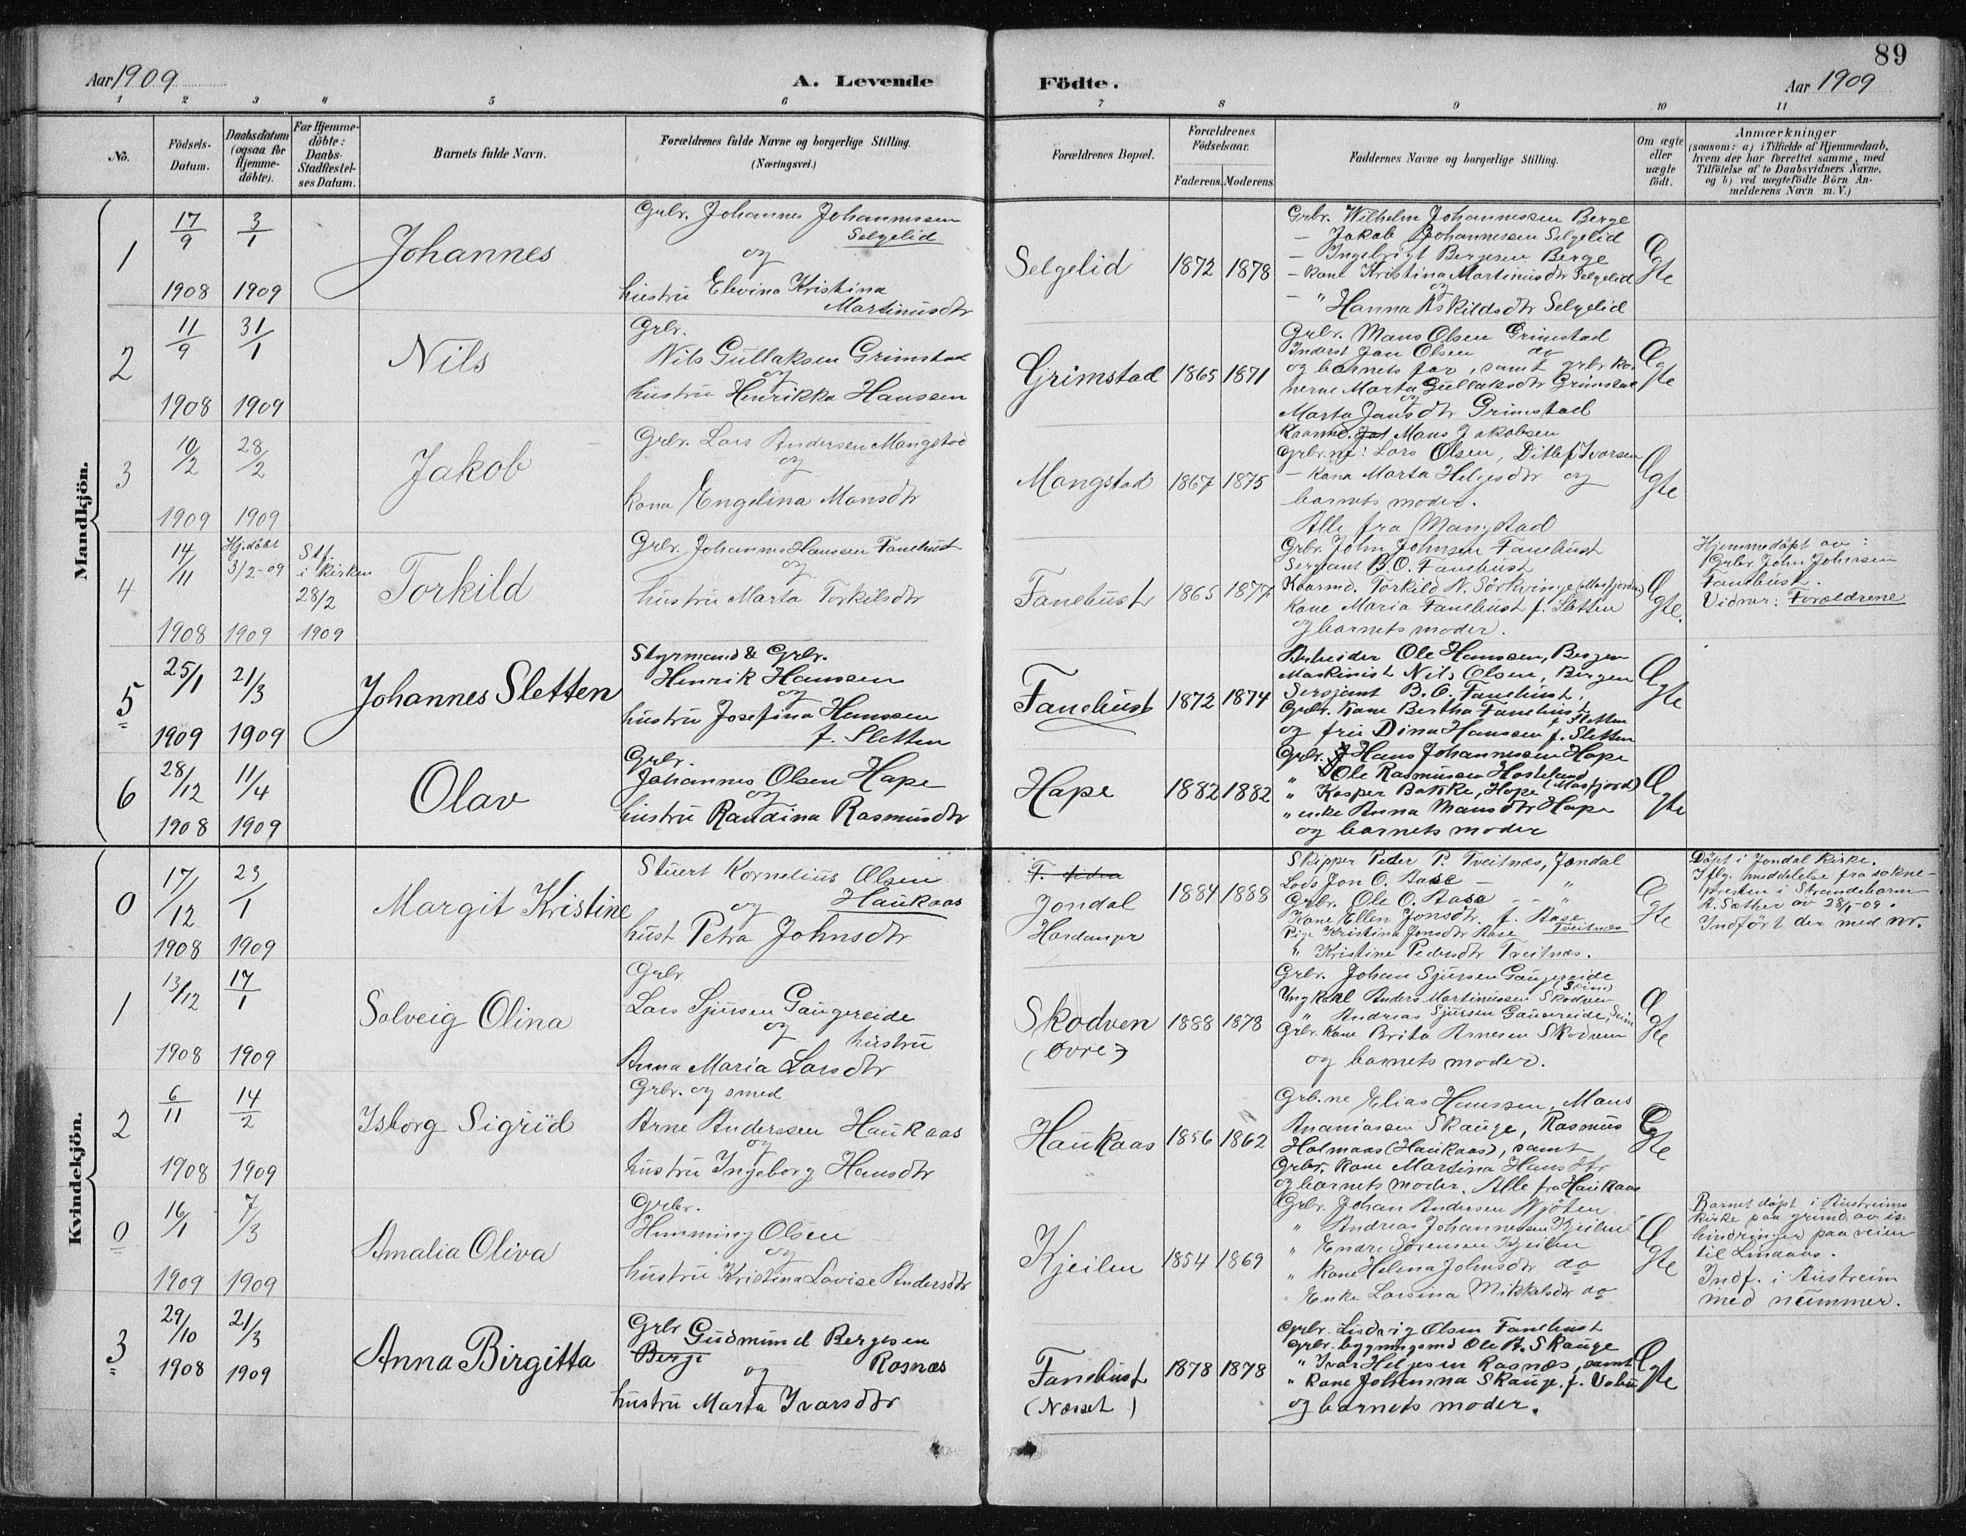 89
Aar 1909
A. Levende
Födte.
Aar 1909
1 2 3 4 5 6 7 8 9 10 11
No.
Födsels-
Datum.
Daabsdatum
(ogsaa for
Hjemme-
döbte).
For Hjemme-
döbte:
Daabs-
Stadfæstel-
ses Datum.
Barnets fulde Navn.
Forældrenes fulde Navne og borgerlige Stilling.
(Næringsvei.)
Forældrenes Bopæl.
Forældrenes
Födselsaar.
Faderens. Moderens.
Faddernes Navne og borgerlige Stilling.
Om ægte
eller
uægte
födt.
Anmærkninger
(saasom: a) i Tilfælde af Hjemmedaab,
hvem der har forrettet samme, med
Tilföielse af to Daabsvidners Navne,
og b) ved uægtefödte Börn An-
melderens Navn m. V.)
Mandkjön.
1
17/9 1908
3/1 1909
Johannes
Grbr. Johannes Johannessen
Selgelid
og
hustru Elevina Kristina
Martinusdtr
Selgelid
1872 1878
Grbr. Wilhelm Johannessen Berge
— Jakob Johannessen Selgelid
— Ingebrigt Bergesen Berge
— kone Kristina Martinusdtr Selgelid
og
— " Hanna Askildsdtr Selgelid
Ægte
2
11/9 1908
31/1 1909
Nils
Grbr.
Nils Gullaksen Grimstad
og
hustru Henrikka Hanssen
Grimstad
1865 1871
Grbr. Mans Olsen Grimstad
Inderst Jan Olsen do
og barnets far, samt grbr.ko-
nerne Marta Gullaksdtr Grimstad
og
Marta Jansdtr Grimstad
Ægte
3
10/2 1909
28/2 1909
Jakob
Grbr. Lars Andersen Mangstad
og
kona Engelina Monsdtr
Mangstad
1867 1875
Kaarmd. Mans Jakobsen
Grbr.ne: Lars Olsen, Ditlef Ivarsen
— kona Marta Helgesdtr og
barnets moder.
Alle fra Mangstad
Ægte
4
14/11 1908
Hj.döbt
3/2-09
1909
Stf.
i kirken
28/2
1909
Torkild
Grbr. Johannes Hanssen Fanebust
og
hustru Marta Torkilsdtr
Fanebust
1865 1877
Grbr. John Johnsen Fanebust
Sergeant B.O. Fanebust
Kaarmd. Torkild N. Sörkvinge (Masfjorden)
Kone Maria Fanebust f. Sletten
og barnets moder.
Ægte.
Hjemmedöpt av:
Grbr. John Johnsen
Fanebust.
Vidner: Forældrene
5
25/1 1909
21/3 1909
Johannes Sletten
Styrmand & Grbr.
Henrik Hanssen
og
hustru Josefina Hanssen
f. Sletten
Fanebust
1872 1874
Arbeider Ole Hanssen, Bergen
Maskinist Nils Olsen, Bergen
Sersjant B.O. Fanebust,
Grbr. Kone Bertha Fanebust
f. Sletten
og fru Dina Hanssen f. Sletten
Ægte
6
28/12 1908
11/4 1909
Olav
Grbr.
Johannes Olsen Hope
og
hustru Randina Rasmusdtr
Hope
1882 1882
Grbr. Hans Johannessen Hope
" Ole Rasmussen Hosteland
" Kasper Bakke, Hope (Masfjord)
" enke Anna Mansdtr Hope
og barnets moder
Ægte
Kvindekjön.
0
17/12 1908
23/1 1909
Margit Kristine
Stuert Kornelius Olsen
Haukaas
og
hust Petra Johnsdtr
Jondal
Hardanger
1884 1888
Skipper Peder P. Tveitnæs, Jondal
Lods Jon O. Aase — "
Grbr. Ole O. Aase — "
Kone Ellen Jonsdtr. f. Aase
Tveitnæs
Pige Kristina Jonsdtr Aase
" Kristine Pedersdtr Tveitnæs.
Ægte
Döpt i Jondal Kirke.
Iflg. meddelelse fra sokne-
presten i Strandebarm
A. Sæther av 28/1-09.
Indfört der med nr.
1
13/12 1908
17/1 1909
Solveig Olina
Grbr
Lars Sjursen Gaugereide
og hustru
Anna Maria Larsdtr
Skodven
(Övre)
1888 1878
Grbr. Johan Sjursen Gaugereide
(Seim)
Ungkarl Anders Martinussen Skodven
" Andreas Sjursen Gaugereide, Seim
Grbr Kane Brita Arnesen Skodven
og barnets moder.
Ægte
2
6/11 1908
14/2 1909
Isborg Sigrid
Grbr. og smed
Arne Anderssen Haukaas
og
hustru Ingeborg Hansdtr
Haukaas
1856 1862
Grb.ne Elias Hanssen, Mans
Ananiassen Skauge, Rasmus
Holmaas (Haukaas), samt
Grbr. kone Martina Hansdtr
og barnets moder. Alle fra Haukaas
Ægte
0
16/1 1909
7/3 1909
Amalia Oliva
Grbr.
Hemming Olsen
og
hustru Kristine Lovise Andersdtr
Kjeilen
1854 1869
Grbr. Johan Andersen
" Andreas Johannessen Kjeilen
" Endre Sörensen Kjeilen
" Kone Helena Johnsdtr do
Enke Larsina Mikkelsdtr do
Ægte
Barnet döpt i Austreims
kirke paa grund av is-
hindringer paa veien
til Lindaas.
Indf. i Austreim
med nummer.
3
29/10 1908
21/3 1909
Anna Birgitta
Grbr Gudmund Bergesen
Berge Rosnæs
og
hustru Marta Ivarsdtr
Fanebust
(Næsset)
1878 1878
Grbr. Ludvig Olsen Fanebust
Grbr. bygningsmd Ole A. Skauge
" Ivar Helgesen Rasnæs, samt
" Kone Johanna Skauge, f.
og barnets moder.
Ægte